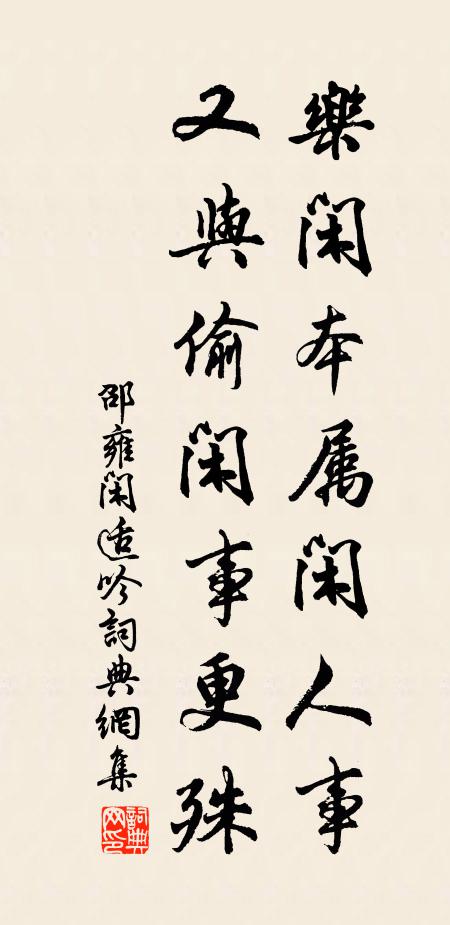 樂閑本属閑人事
又與偷閑事更殊
邵雍閑適吟詞典網集
詞典网印